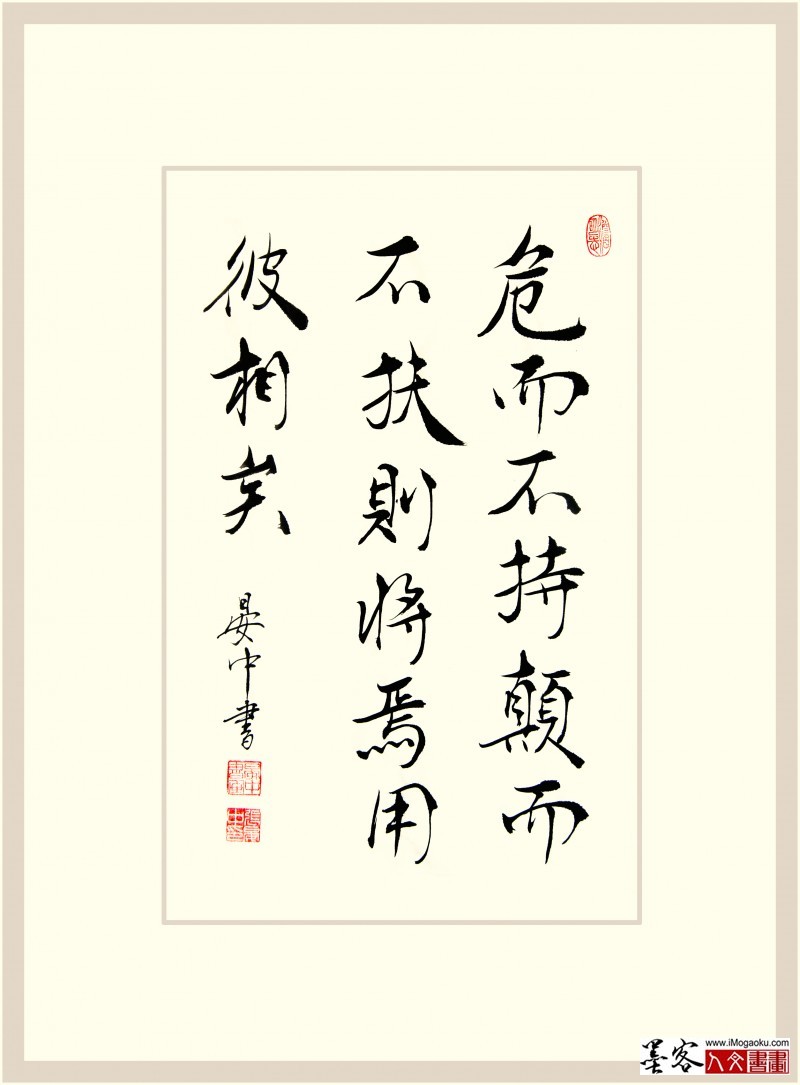 危而不持顛而
不扶則將焉用
彼相矣
晏中書
www.iMogaoku.com
墨客
人文書畫